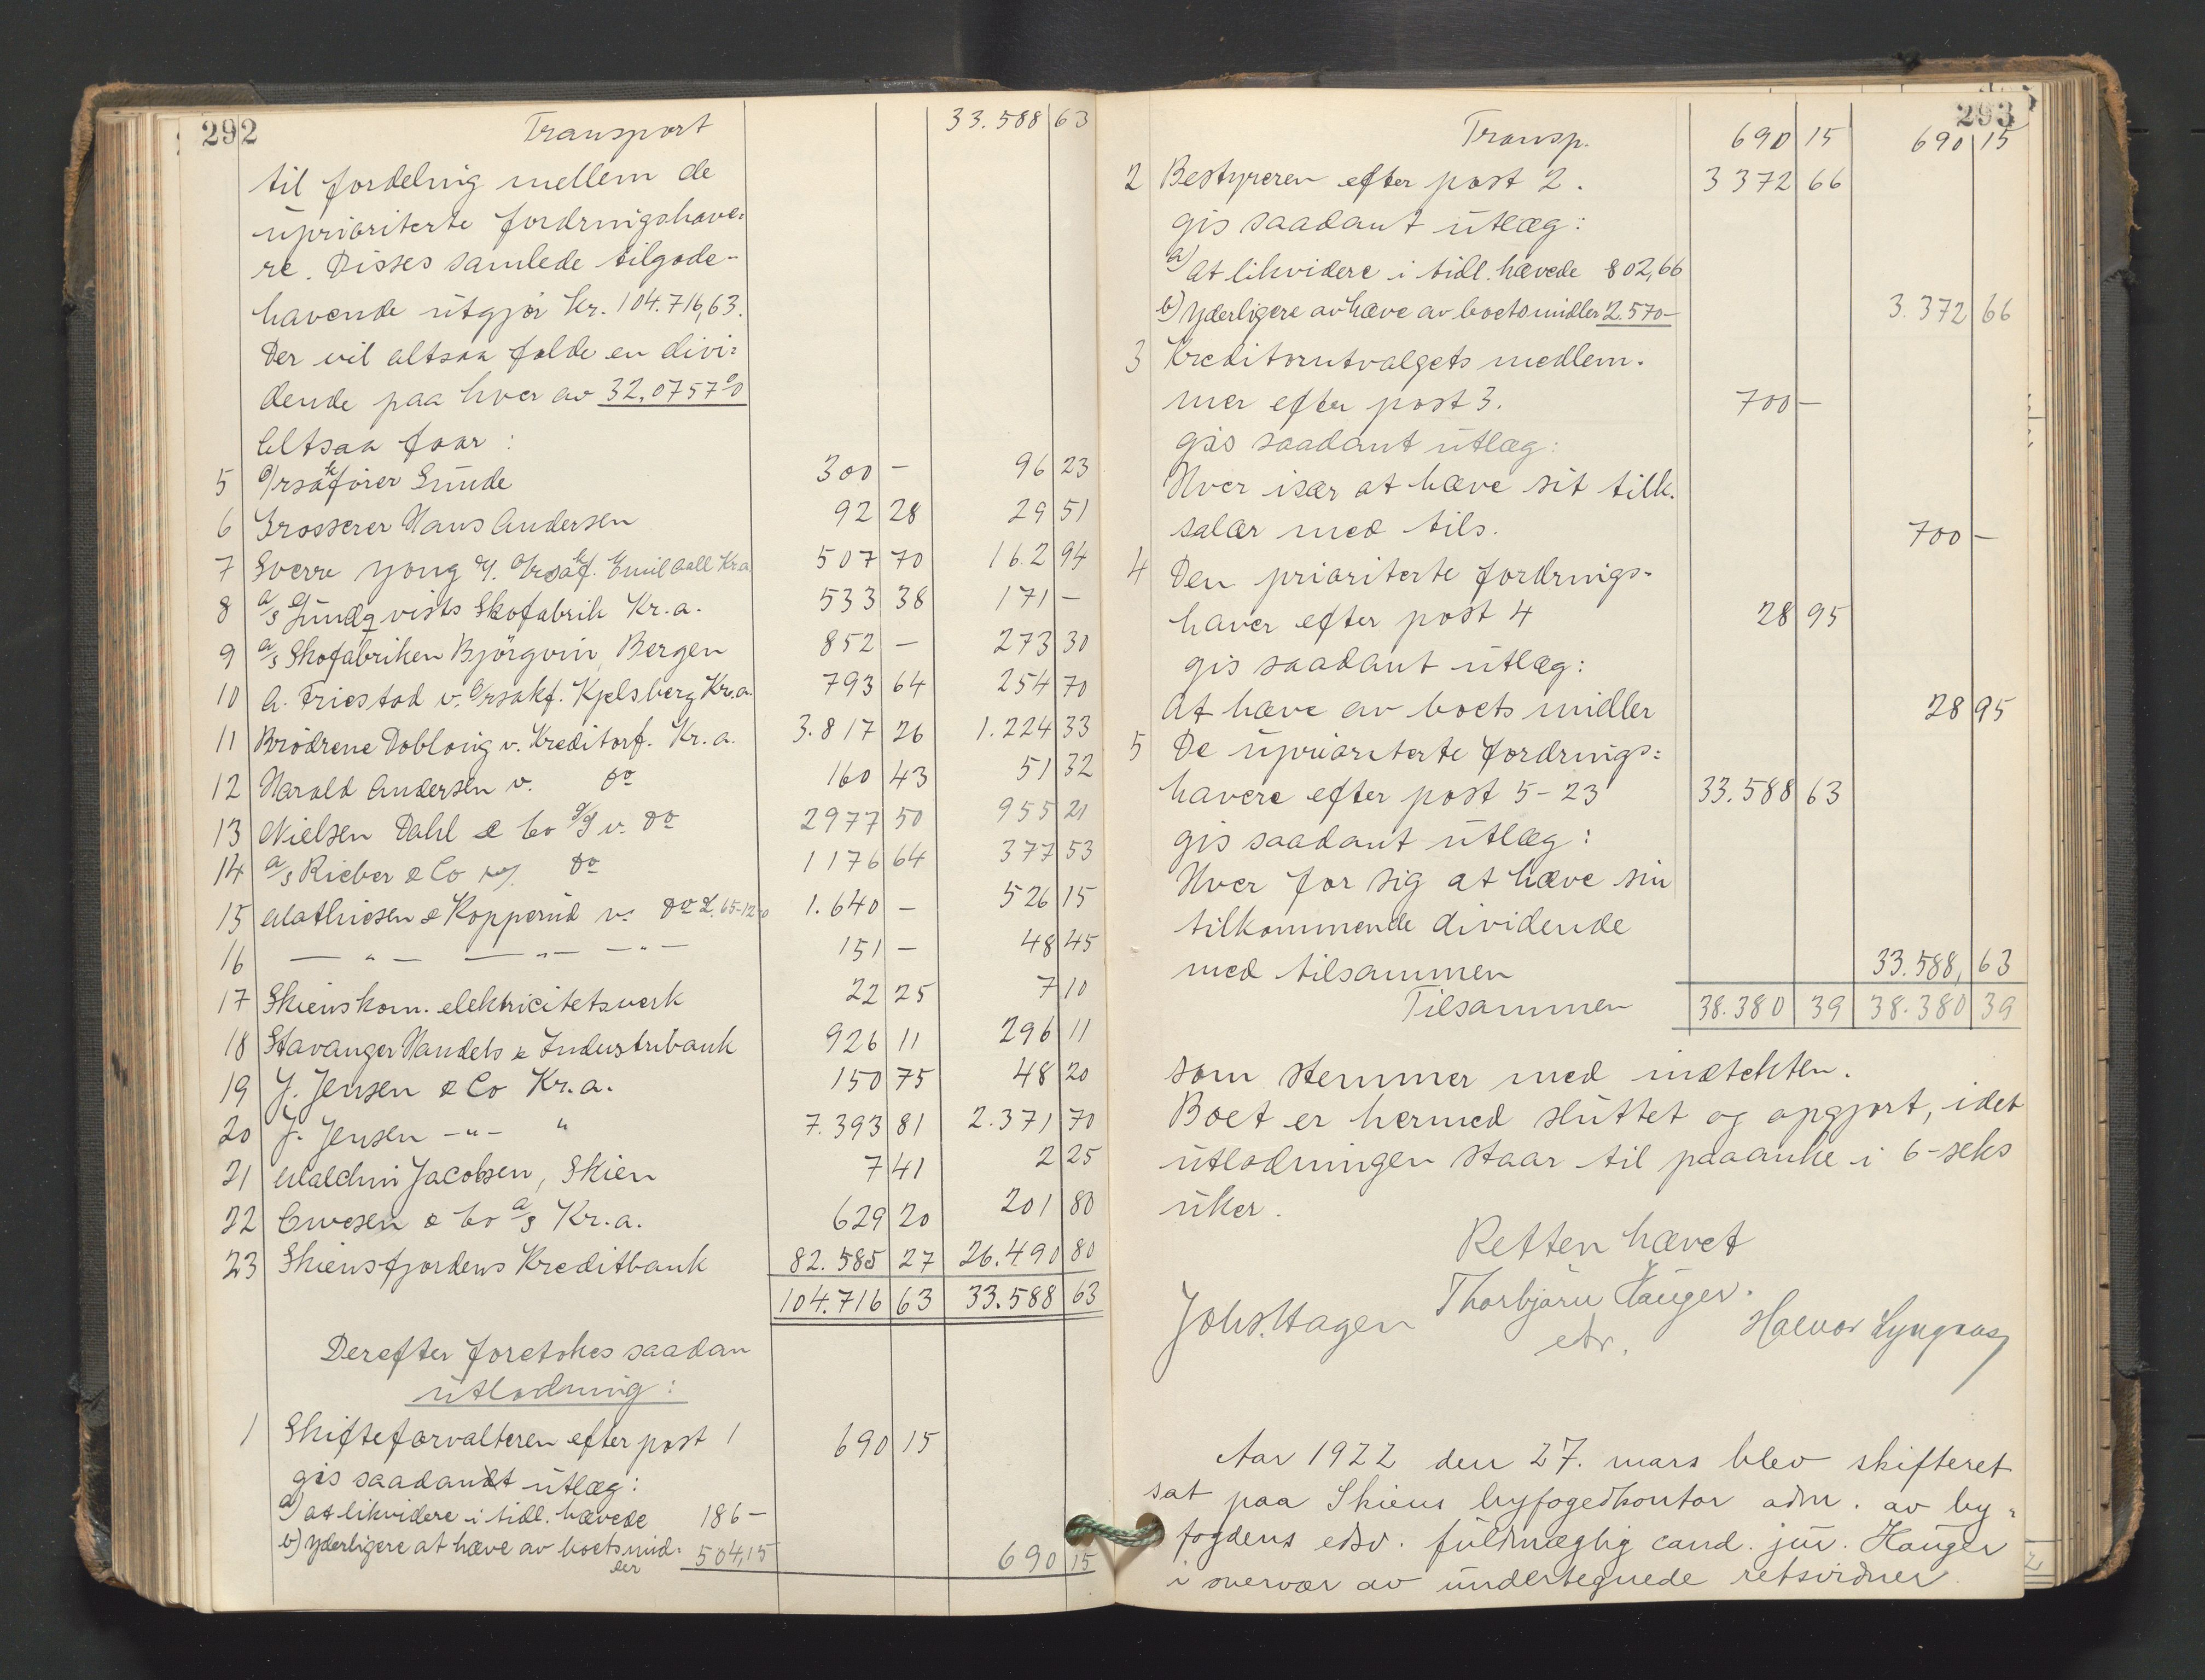 292
Transport 33.588 63
til fordeling mellem de
upriariterte fordringshave=
re. Disses samlede tilgode-
havende utgjør kr. 104.716,63.
Der vil altsaa falde en divi=
dende paa hver av 32,0757%
Altsaa faar:
5 O/rsakfører Sunde 300 - 96 23
6 Grosserer Hans Andersen 92 28 29 51
7 Sverre Yong v/ O/rsakf. Emil Aall Kr.a 507 70 162 94
8 A/s Lundqvists Skofabrik Kr.a. 533 38 171 -
9 A/s Skofabriken Bjørgvin, Bergen 852 - 273 30
10 A. Friestad v. O/rsakf. Kjelsberg Kr.a. 793 64 254 70
11 Brødrene Dobloug v. Kreditorf. Kr.a. 3.817 26 1.224 33
12 Harald Andersen v. do 160 43 51 32
13 Nielsen Dahl & Co v. do 2977 50 955 21
14 A/s Rieber & Co do 1176 64 377 53
15 Mathiesen & Kopperud v. do £. 65-12-0 1.640 - 526 15
16 — " — — " — 151 - 48 45
17 Skiens kom. elektricitetsverk 22 25 7 10
18 Stavanger Handels & Industribank 926 11 296 11
19 J. Jensen & Co Kr.a. 150 75 48 20
20 J. Jensen -"- " 7.393 81 2.371 70
21 Malchin Jacobsen, Skien 7 41 2 25
22 Ewesen & Co A/s Kr.a. 629 20 201 80
23 Skiensfjordens Kreditbank 82.585 27 26.490 80
104.716 63 33.588 63
Derefter foretokes saadan
utlodning:
1 Skifteforvalteren efter post 1 690 15
gis saadandt utlæg:
a) at likvidere i tidl. hævede 186 -
b) Yderligere at hæve av boets mid= 504,15
ler 690 15
293
Transp. 690 15 690 15
2 Bestyreren efter post 2. 3372 66
gis saadant utlæg:
a) At likvidere i tidl. hævede 802,66
b) Yderligere av hæve av boets midler 2.570- 3.372 66
3 Kreditorutvalgets medlem-
mer efter post 3. 700 -
gis saadant utlæg:
Hver især at hæve sit tilk.
salær med tils. 700 -
4 Den priariterte fordrings-
haver efter post 4 28 95
gis saadant utlæg:
At hæve av boets midler 28 95
5 De upriariterte fordrings=
havere efter post 5-23 33.588 63
gis saadant utlæg:
Hver for sig at hæve sin
tilkommende dividende
med tilsammen 33.588, 63
Tilsammen 38.380 39 38.380 39
som stemmer med indtekten.
Boet er hermed sluttet og opgjort, idet
utlodningen staar til paaanke i 6-seks
uker.
Retten hævet
Thorbjørn Hauger.
Johs. Hagen etr. Halvor Lyngaas
Aar 1922 den 27. mars blev skifteret
sat paa Skiens byfogedkontor adm. av by=
fogdens edsv. fuldmægtig cand. jur. Hauger
i overvær av undertegnede retsvidner